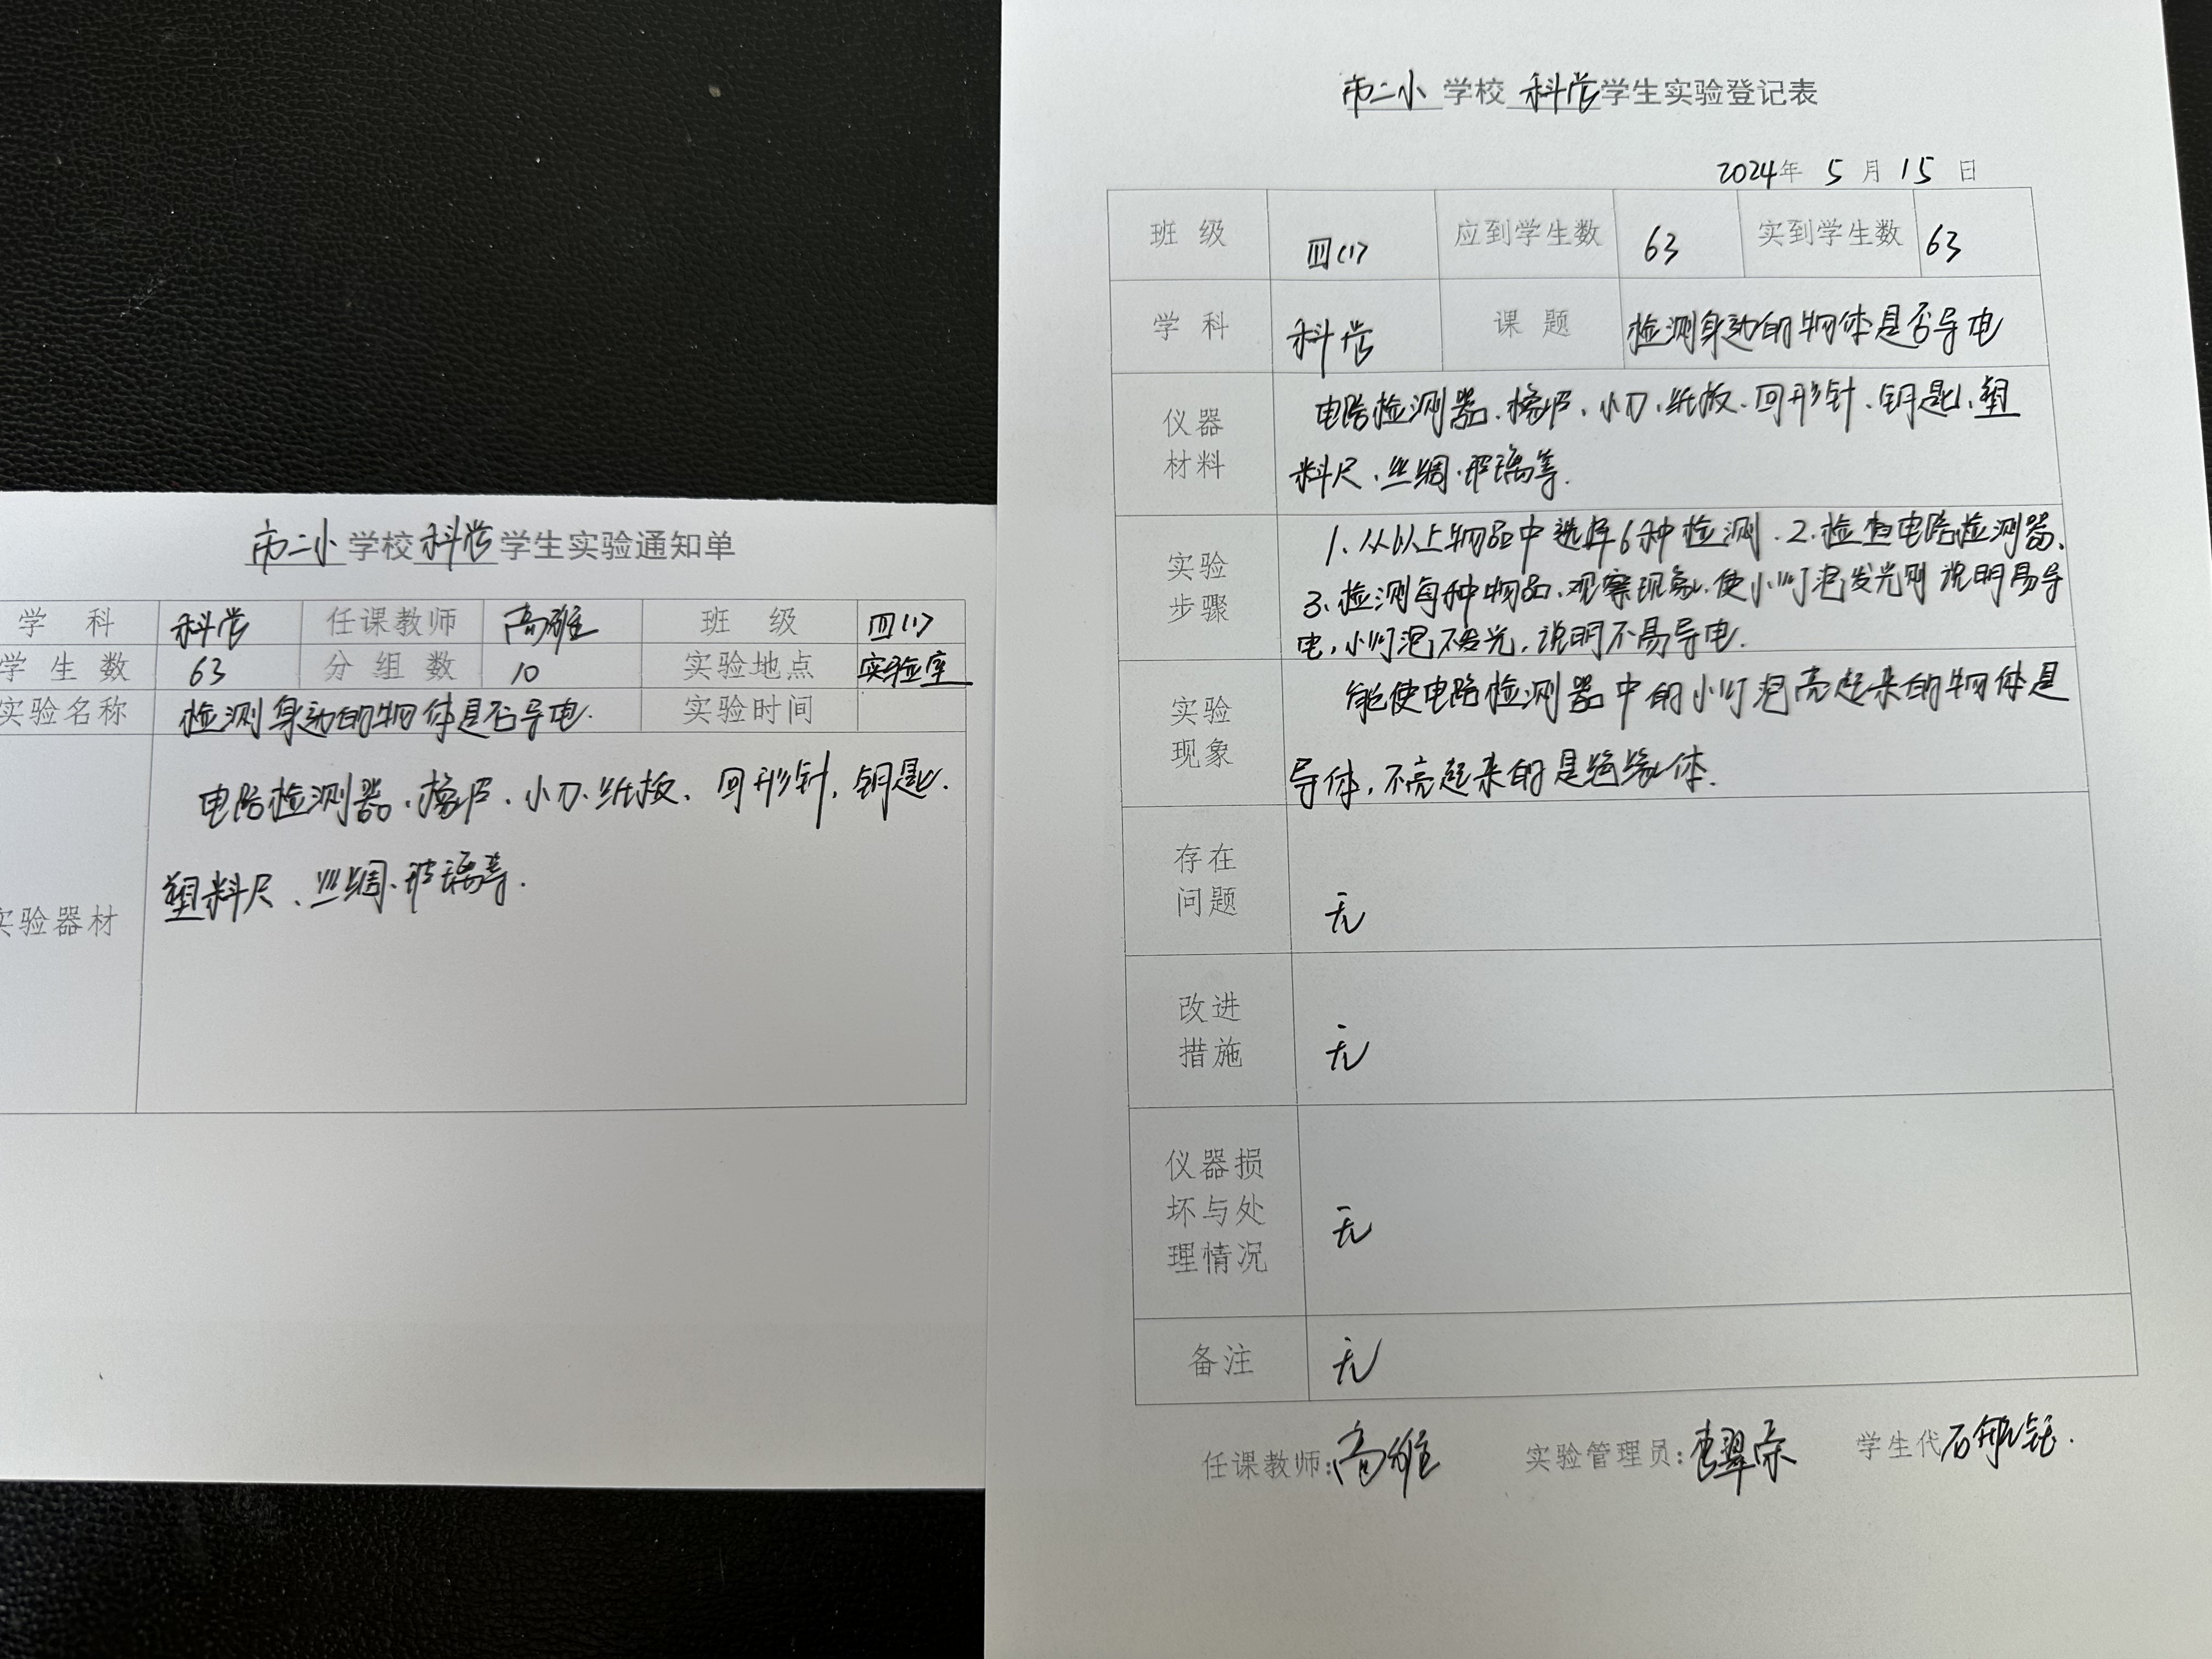 市二小学校科学学生实验通知单
学 科 科学 任课教师 高雅 班 级 四(1)
学生数 63 分组数 10 实验地点 实验室
实验名称 检测身边的物体是否导电. 实验时间
实验器材
电路检测器、橡皮、小刀、纸板、回形针、钥匙、
塑料尺、丝绸、玻璃等.
市二小学校科学学生实验登记表
2024年5月15日
班 级 四(1) 应到学生数 63 实到学生数 63
学 科 科学 课 题 检测身边的物体是否导电
仪器
材料
电路检测器、橡皮、小刀、纸板、回形针、钥匙、塑
料尺、丝绸、玻璃等.
实验
步骤
1、从以上物品中选择6种检测.2.检查电路检测器、
3、检测每种物品、观察现象、使小灯泡发光则说明易导
电,小灯泡不发光,说明不易导电.
实验
现象
能使电路检测器中的小灯泡亮起来的物体是
导体,不亮起来的是绝缘体.
存在
问题
无
改进
措施
无
仪器损
坏与处
理情况
无
备注 无
任课教师:高雅 实验管理员: 学生代